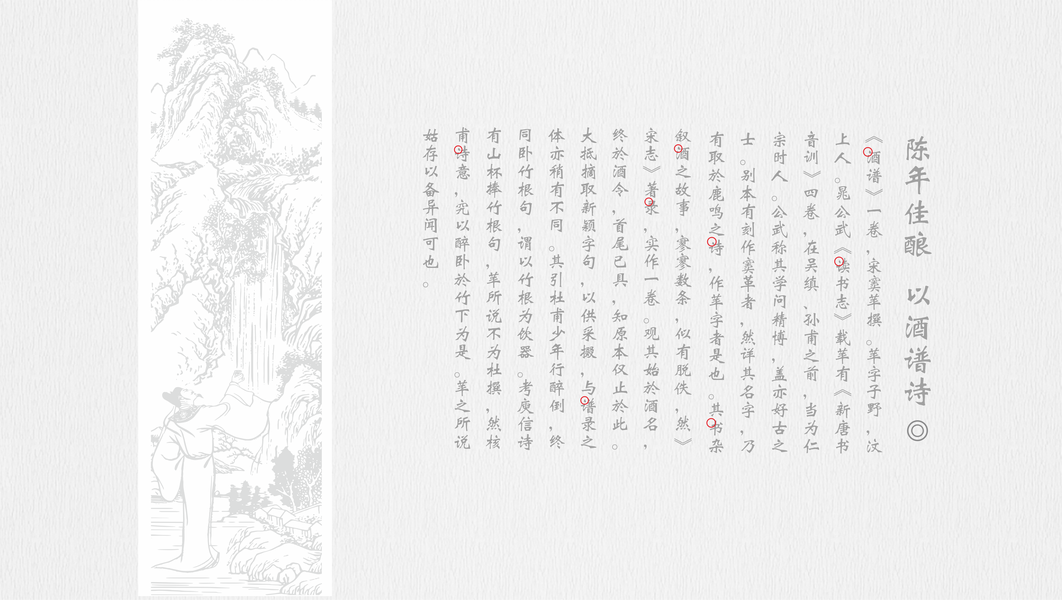 陈年佳酿 以酒谱诗
《酒谱》一卷，宋窦苹撰。苹字子野，汶
上人。晁公武《读书志》载苹有《新唐书
音训》四卷，在吴缜、孙甫之前，当为仁
宗时人。公武称其学问精博，盖亦好古之
士。别本有刻作窦革者，然详其名字，乃
有取於鹿鸣之诗，作苹字者是也。其书杂
叙酒之故事，寥寥数条，似有脱佚，然》
宋志》著录，实作一卷。观其始於酒名，
终於酒令，首尾已具，知原本仅止於此。
大抵摘取新颖字句，以供采掇，与谱录之
体亦稍有不同。其引杜甫少年行醉倒，终
同卧竹根句，谓以竹根为饮器。考庾信诗
有山杯捧竹根句，苹所说不为杜撰，然核
甫诗意，究以醉卧於竹下为是。苹之所说
姑存以备异闻可也。